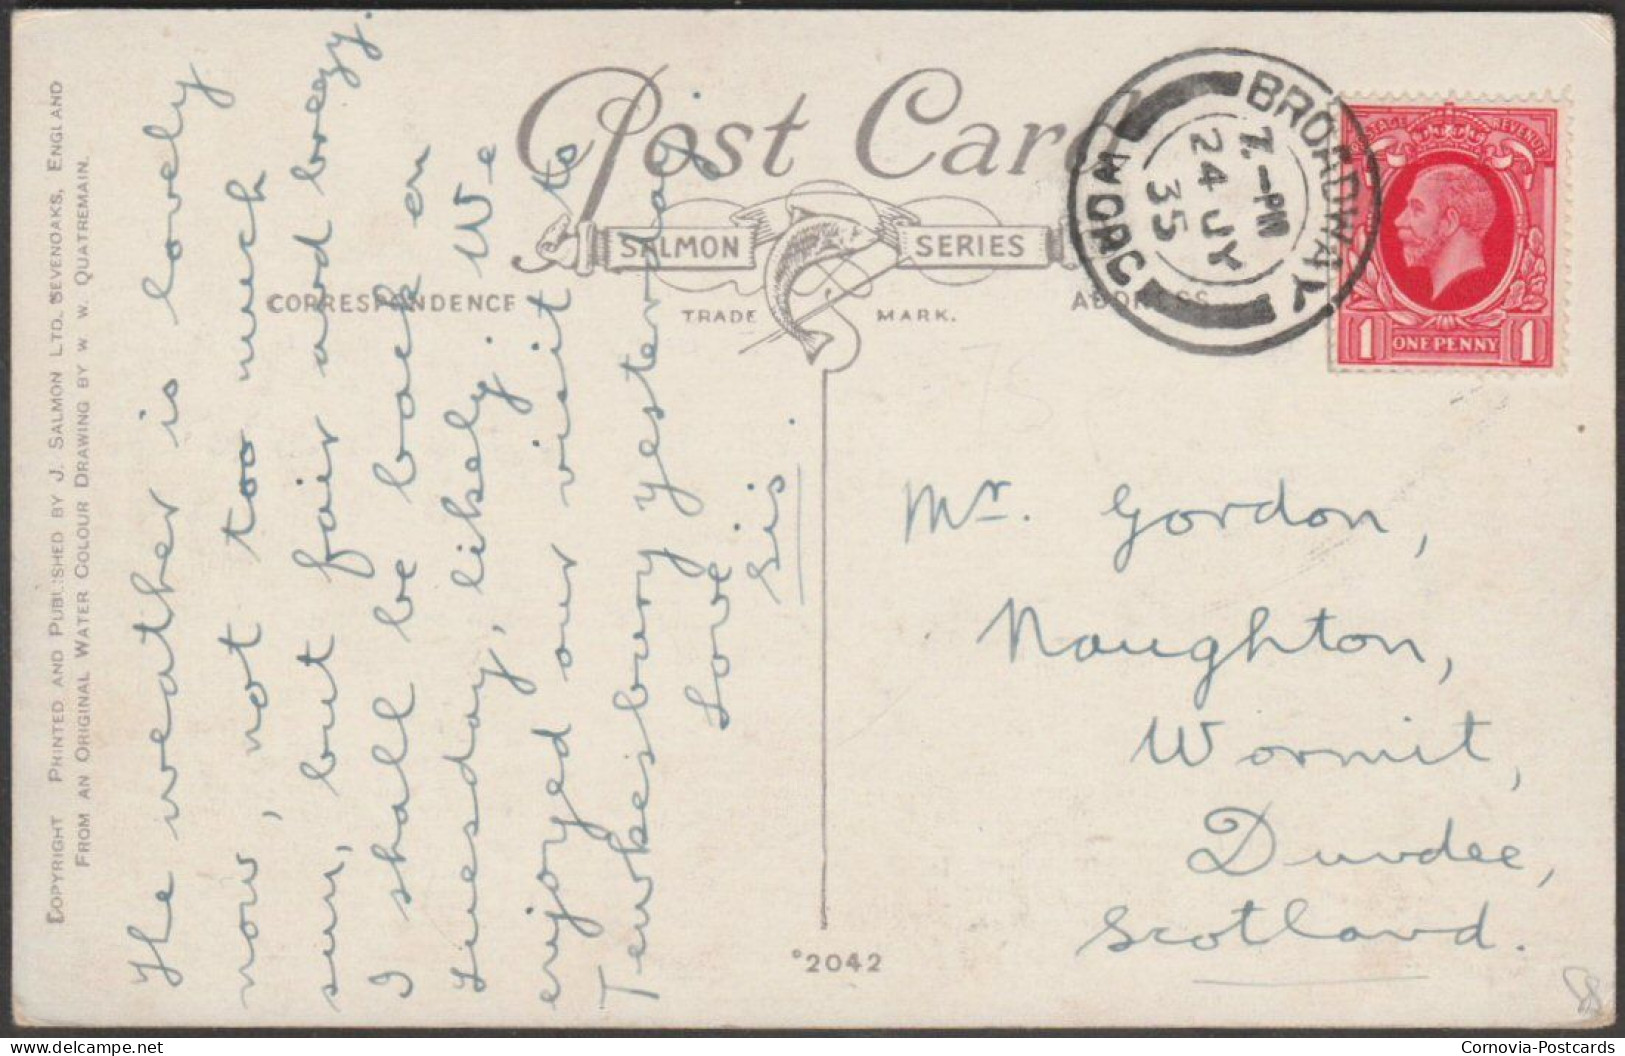 COPYRIGHT PRINTED AND PUBLISHED BY J. SALMON LTD. SEVENOAKS, ENGLAND
FROM AN ORIGINAL WATER COLOUR DRAWING BY W. W. QUATREMAIN.
Post Card
SALMON SERIES
TRADE MARK.
CORRESPONDENCE
ADDRESS
The weather is lovely
now, not too much
sun, but fair and breezy.
I shall be back on
Tuesday, likely. We
enjoyed our visit to
Tewkesbury yesterday
Love
Sis.
BROADWAY
7.-PM
24 JY
35
WORC
POSTAGE REVENUE
1 ONE PENNY 1
75
Mr. Gordon,
Naughton,
Wormit,
Dundee,
Scotland.
°2042
delcampe.net
Cornovia-Postcards